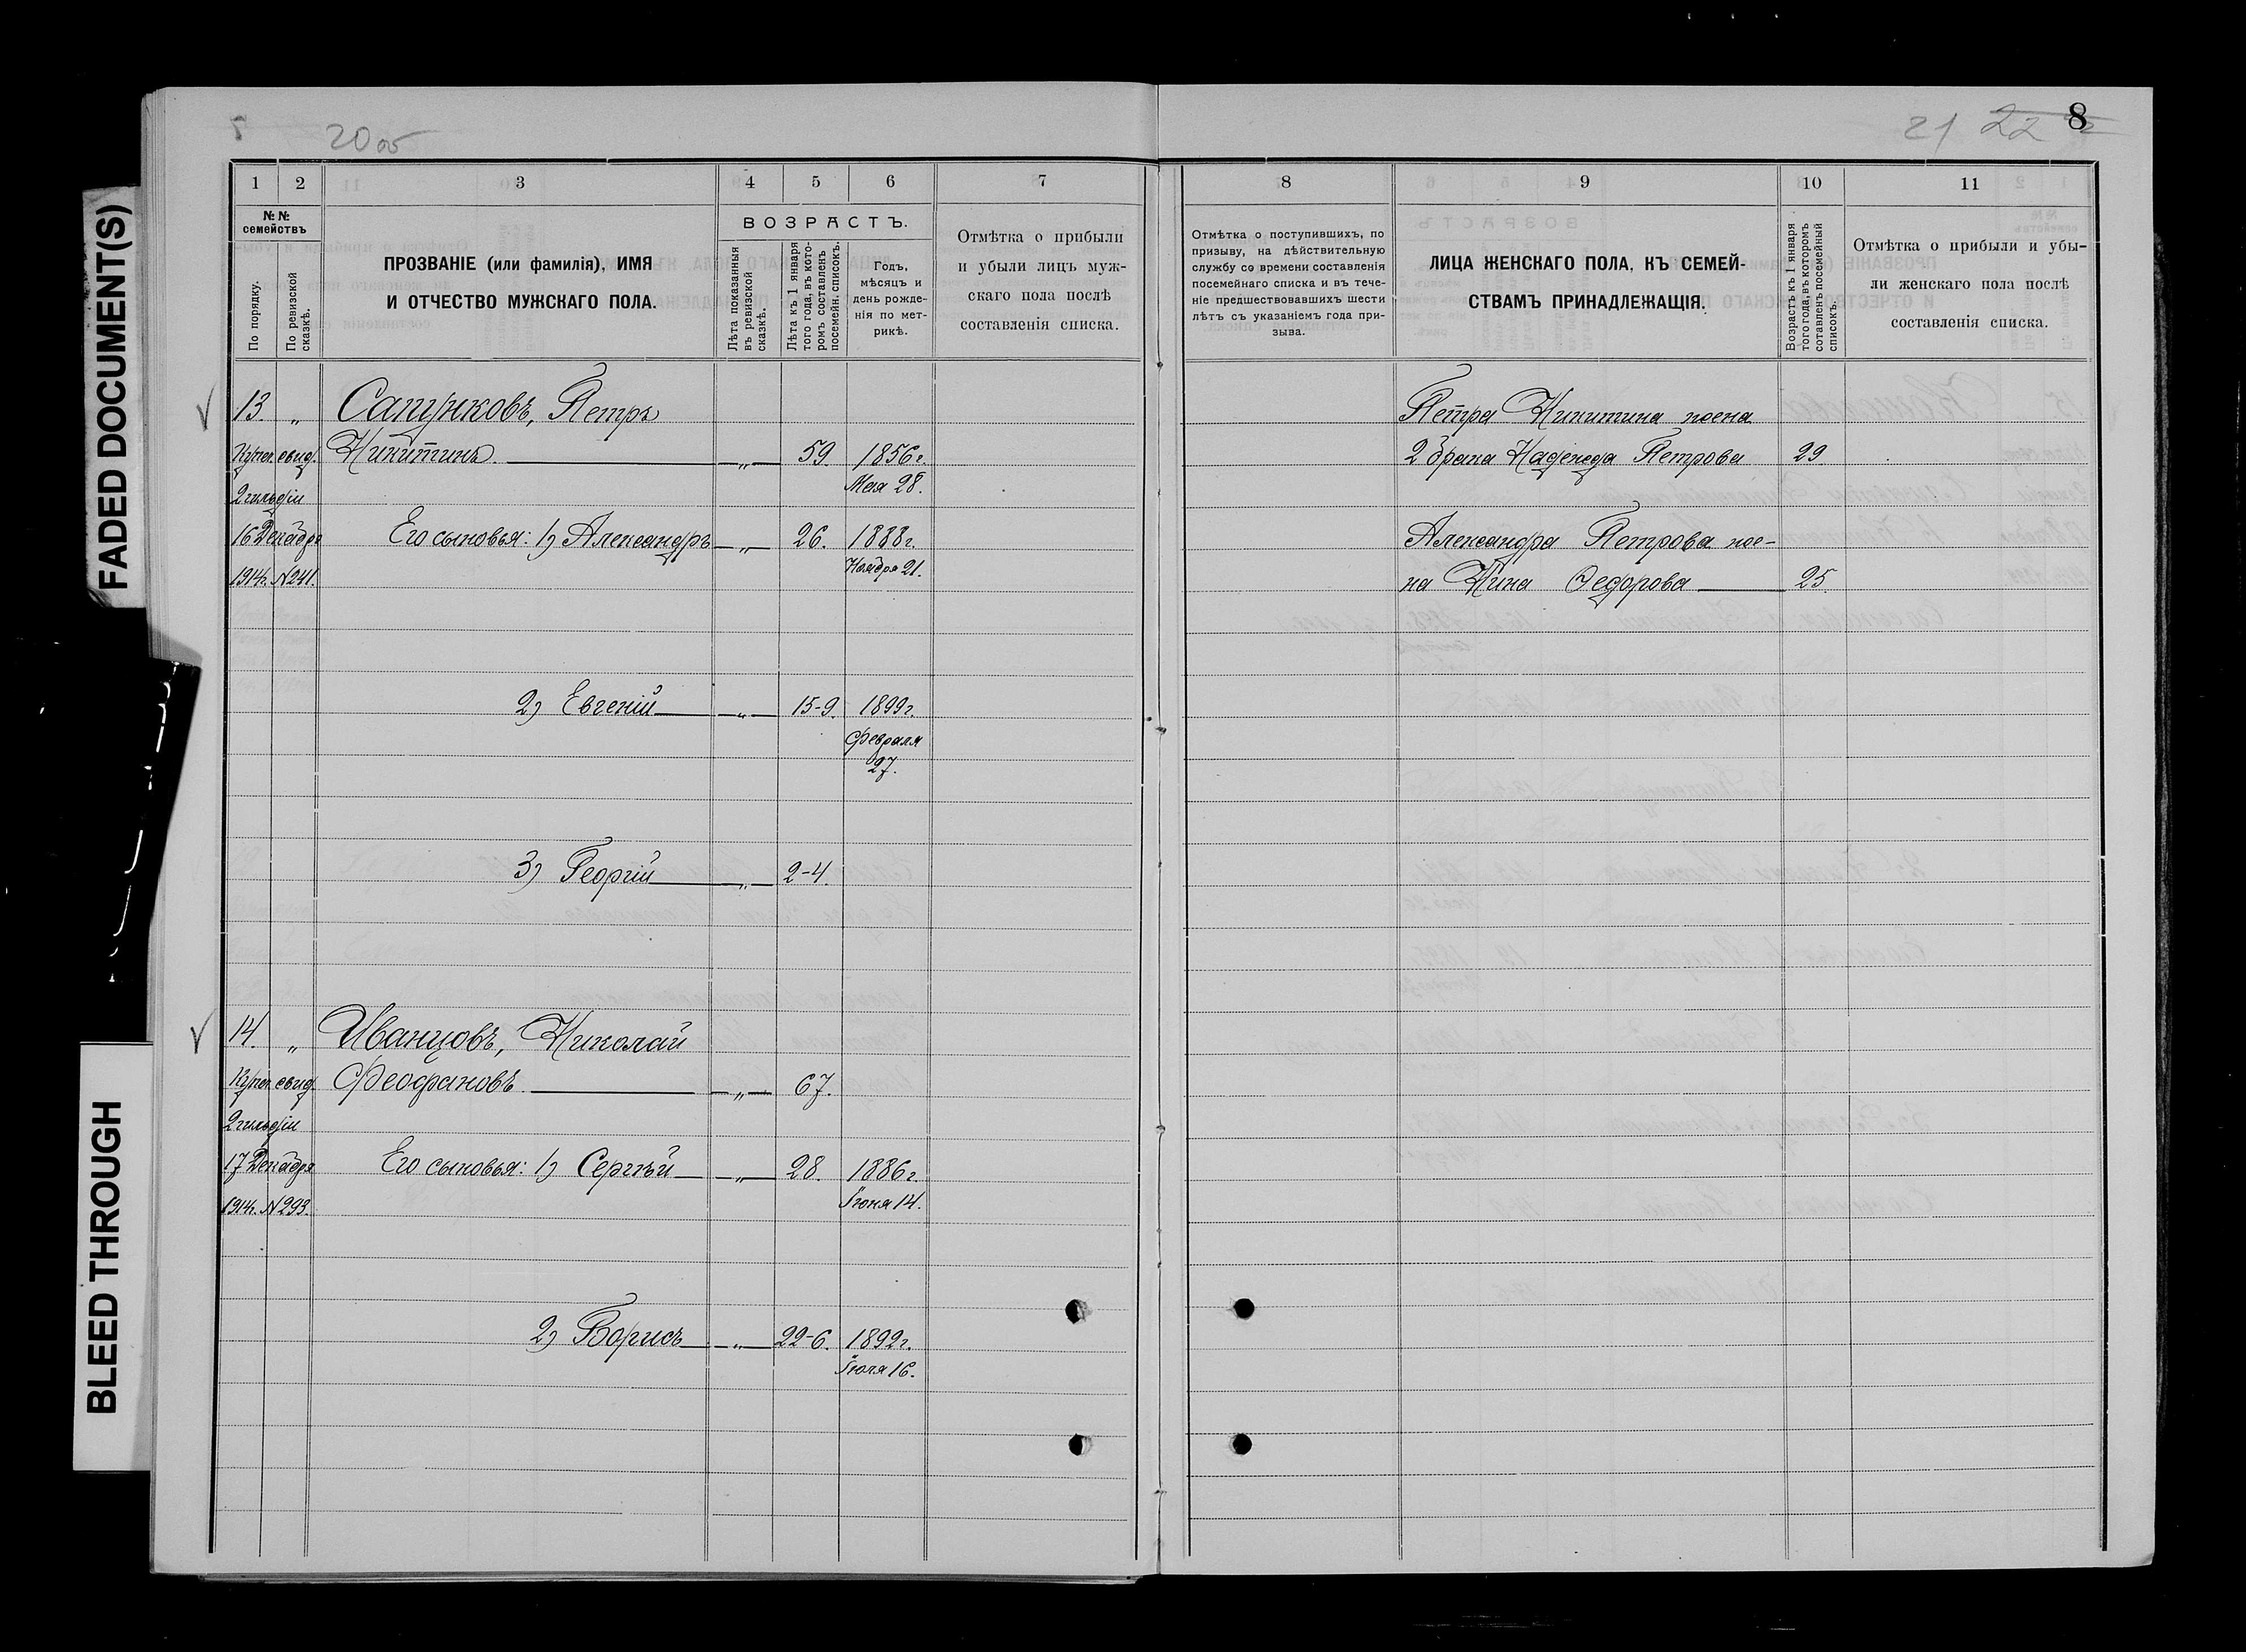 FADED DOCUMENT(S)
BLEED THROUGH
20 об
21 22 8
1 2 3 4 5 6 7
№№ семействъ
По порядку.
По ревизской сказкѣ.
ПРОЗВАНІЕ (или фамилія), ИМЯ
И ОТЧЕСТВО МУЖСКАГО ПОЛА.
ВОЗРАСТЪ.
Лѣта показанныя въ ревизской сказкѣ.
Лѣта къ 1 января того года, въ кото-ромъ составленъ посемейн. списокъ.
Годъ,
мѣсяцъ и
день рожде-
нія по мет-
рикѣ.
Отмѣтка о прибыли
и убыли лицъ муж-
скаго пола послѣ
составленія списка.
13. „ Сапунковъ, Петръ
Купеч. свид. Никитинъ. „ 59. 1856 г.
2 гильдіи Мая 28.
16 Декабря Его сыновья: 1) Александръ „ 26. 1888 г.
1914 г. № 241. Ноября 21.
2) Евгеній „ 15-9. 1899 г.
Февраля
27.
3) Георгій „ 2-4.
14. „ Иванцовъ, Николай
Купеч. свид. Феофановъ „ 67.
2 гильдіи
17 Декабря Его сыновья: 1) Сергѣй „ 28. 1886 г.
1914 г. № 293. Іюня 14.
2) Борисъ „ 22-6. 1892 г.
Іюля 16.
8 9 10 11
Отмѣтка о поступившихъ, по
призыву, на дѣйствительную
службу со времени составленія
посемейнаго списка и въ тече-
ніе предшествовавшихъ шести
лѣтъ съ указаніемъ года при-
зыва.
ЛИЦА ЖЕНСКАГО ПОЛА, КЪ СЕМЕЙ-
СТВАМЪ ПРИНАДЛЕЖАЩІЯ.
Возрастъ къ 1 января того года, въ которомъ сотавленъ посемейный списокъ.
Отмѣтка о прибыли и убы-
ли женскаго пола послѣ
составленія списка.
Петра Никитина жена
2 брака Надежда Петрова 29.
Александра Петрова же-
на Нина Ѳедорова 25.